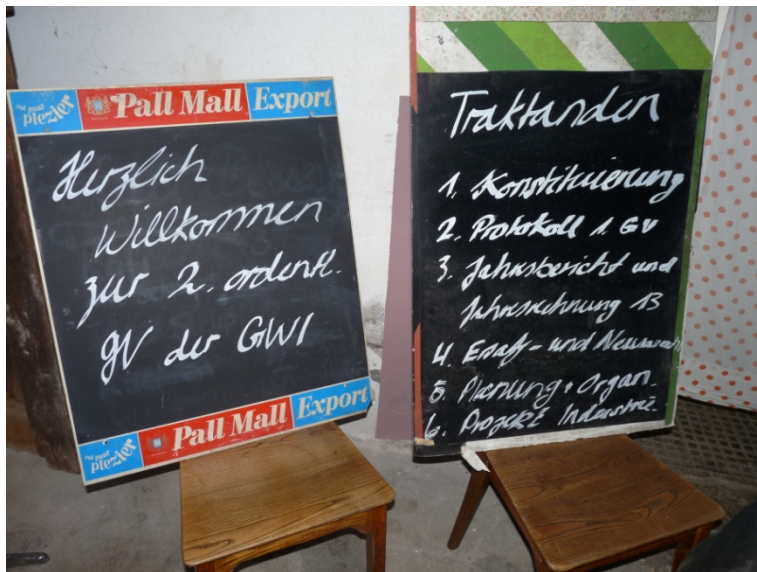 Pall Mall Export
Herzlich
Willkommen
zur 2. ordentl.
GV der GWI
Pall Mall Export
Traktanden
1. Konstituierung
2. Protokoll 1. GV
3. Jahresbericht und
Jahresrechnung 13
4. Ersatz- und Neuwahl
5. Planung + Organ.
6. Projekt Industrie